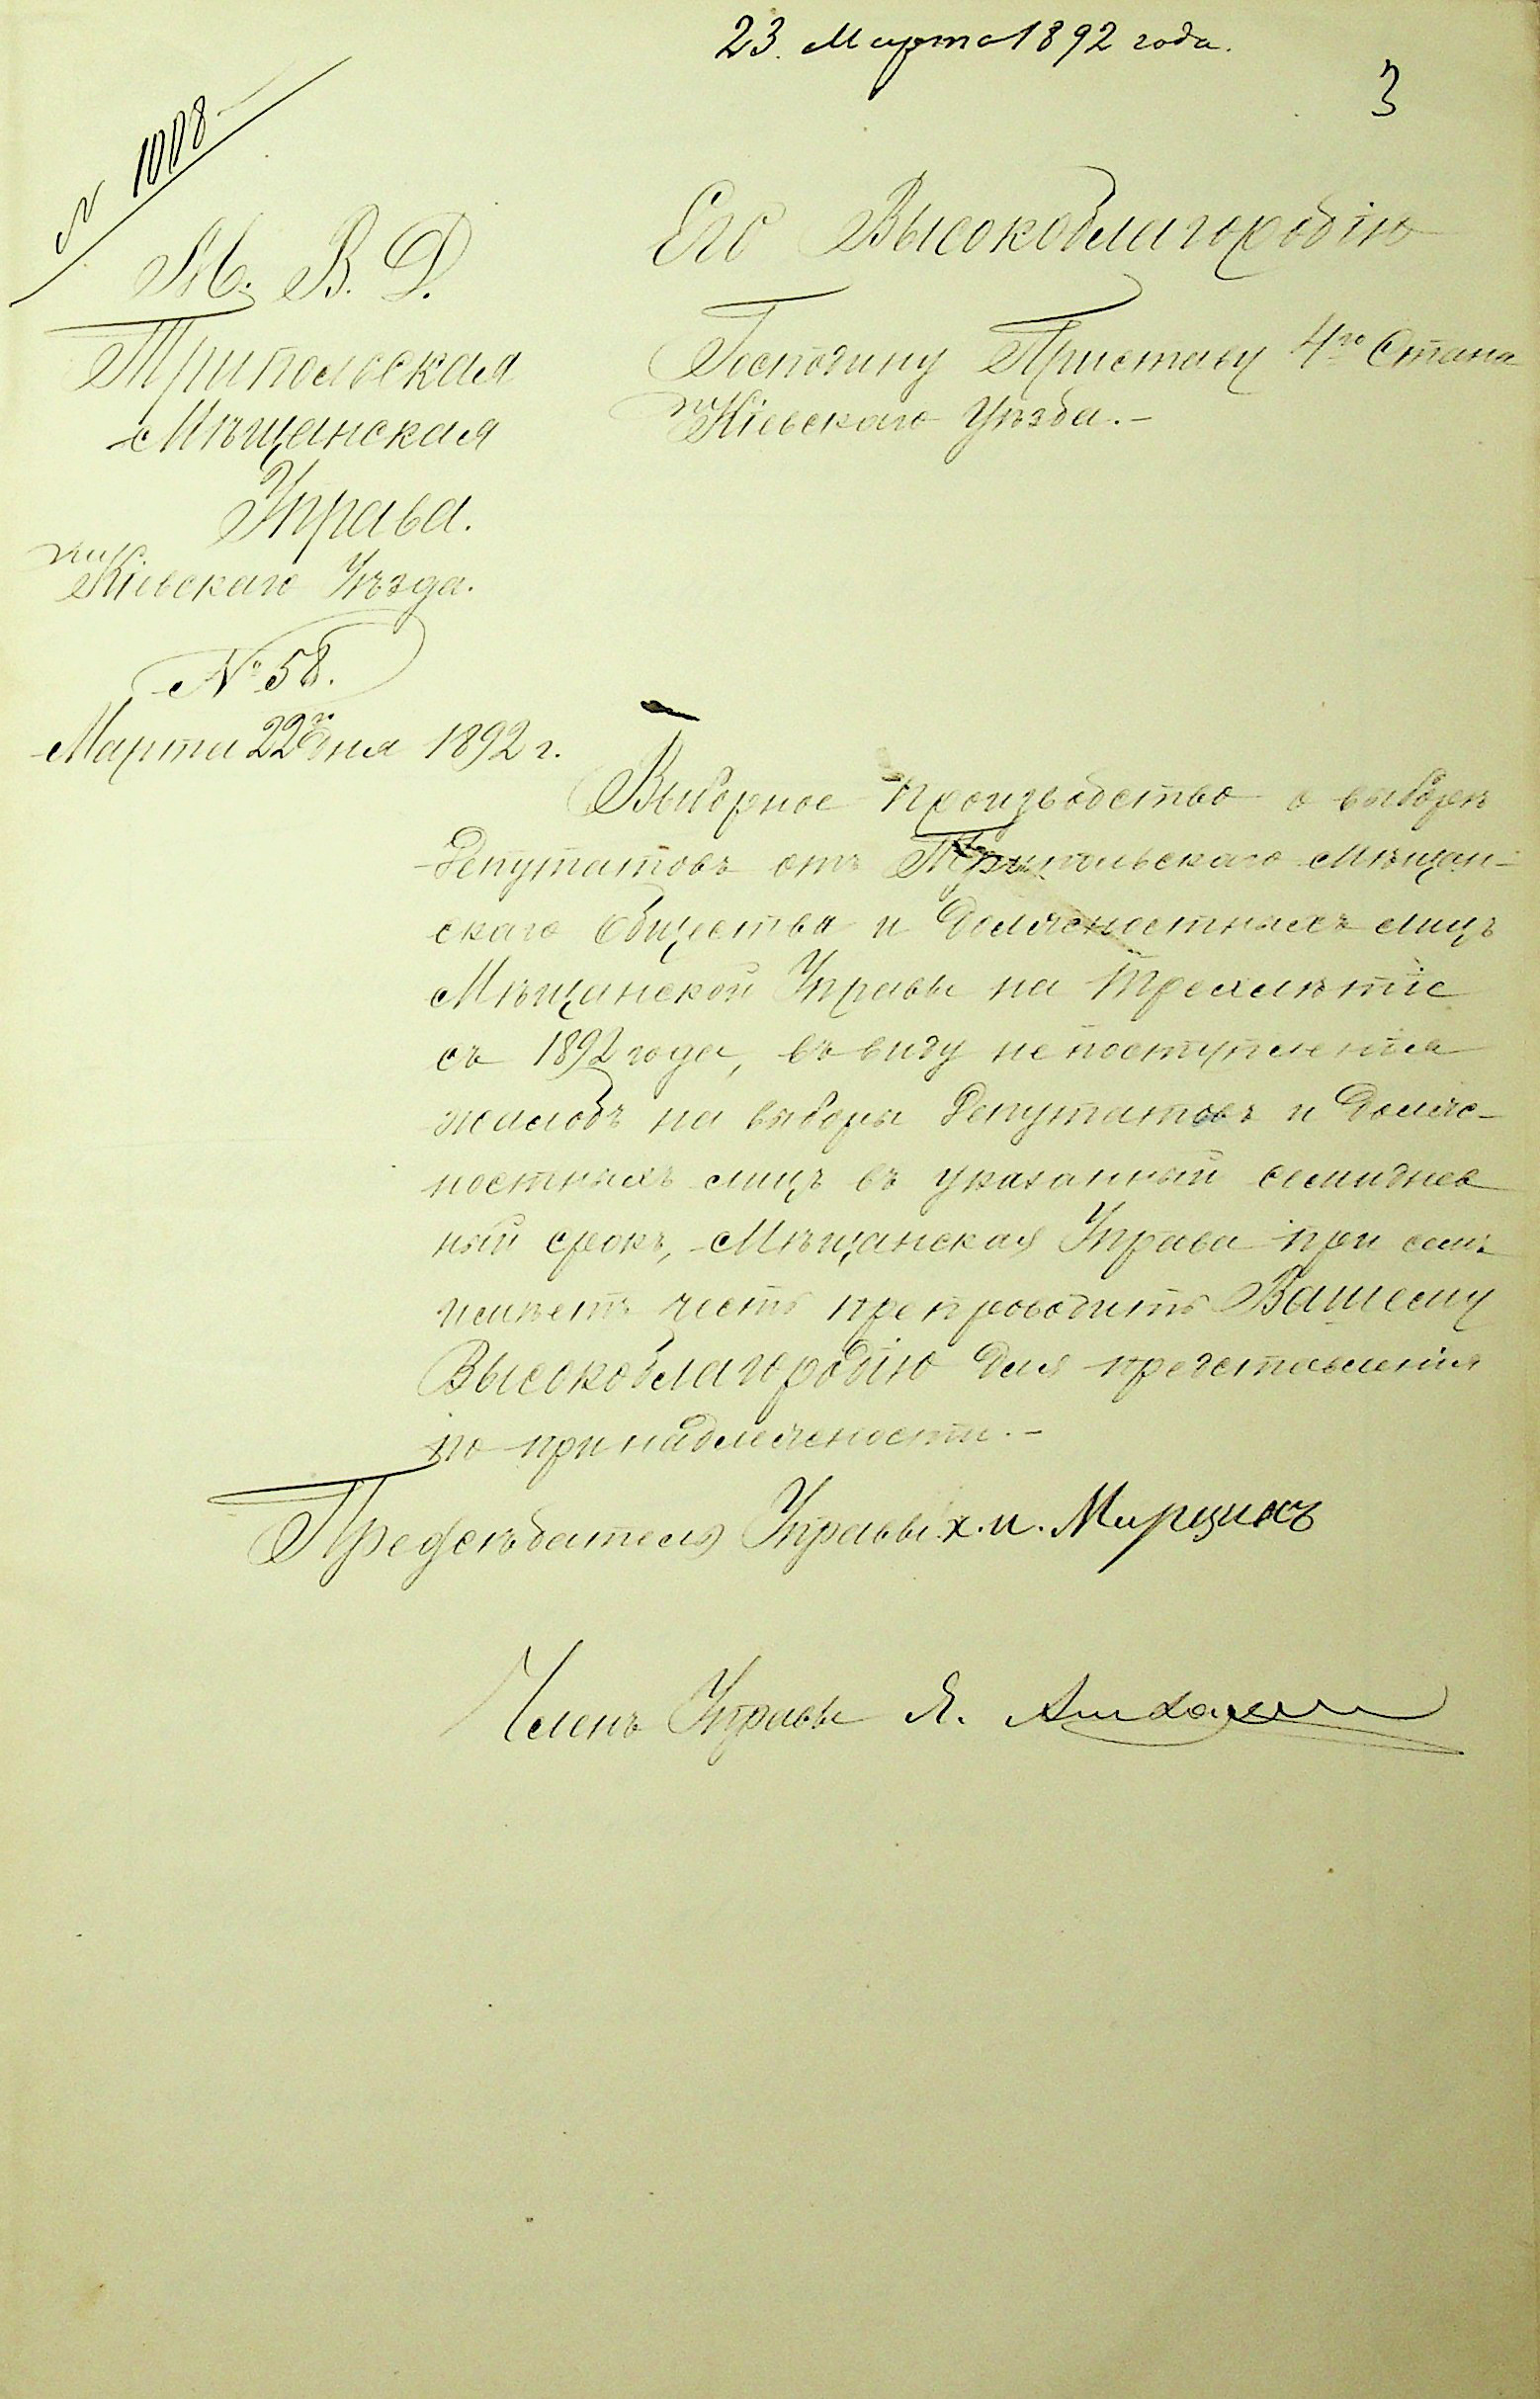 23. Марта 1892 года.
3
№ 1008
М. В. Д.
Трипольская
Мѣщанская
Управа.
Кіевскаго Уѣзда.
№ 58.
Марта 22го дня 1892 г.
Его Высокоблагородію
Господину Приставу 4го Стана
Кіевскаго Уѣзда.-
Выборное производство о выборѣ
Депутатовъ отъ Трипольскаго Мѣщан-
скаго Общества и Должностныхъ лицъ
Мѣщанской Управы на трехлѣтіе
съ 1892 года, въ виду не поступленія
жалобъ на выборы Депутатовъ и Долж-
ностныхъ лицъ въ указанный семиднев
ный срокъ, Мѣщанская Управа при семъ
имѣетъ честь препроводить Вашему
Высокоблагородію для представленія
по принадлежности.-
Предсѣдатель Управы Х. И.
Членъ Управы Я.